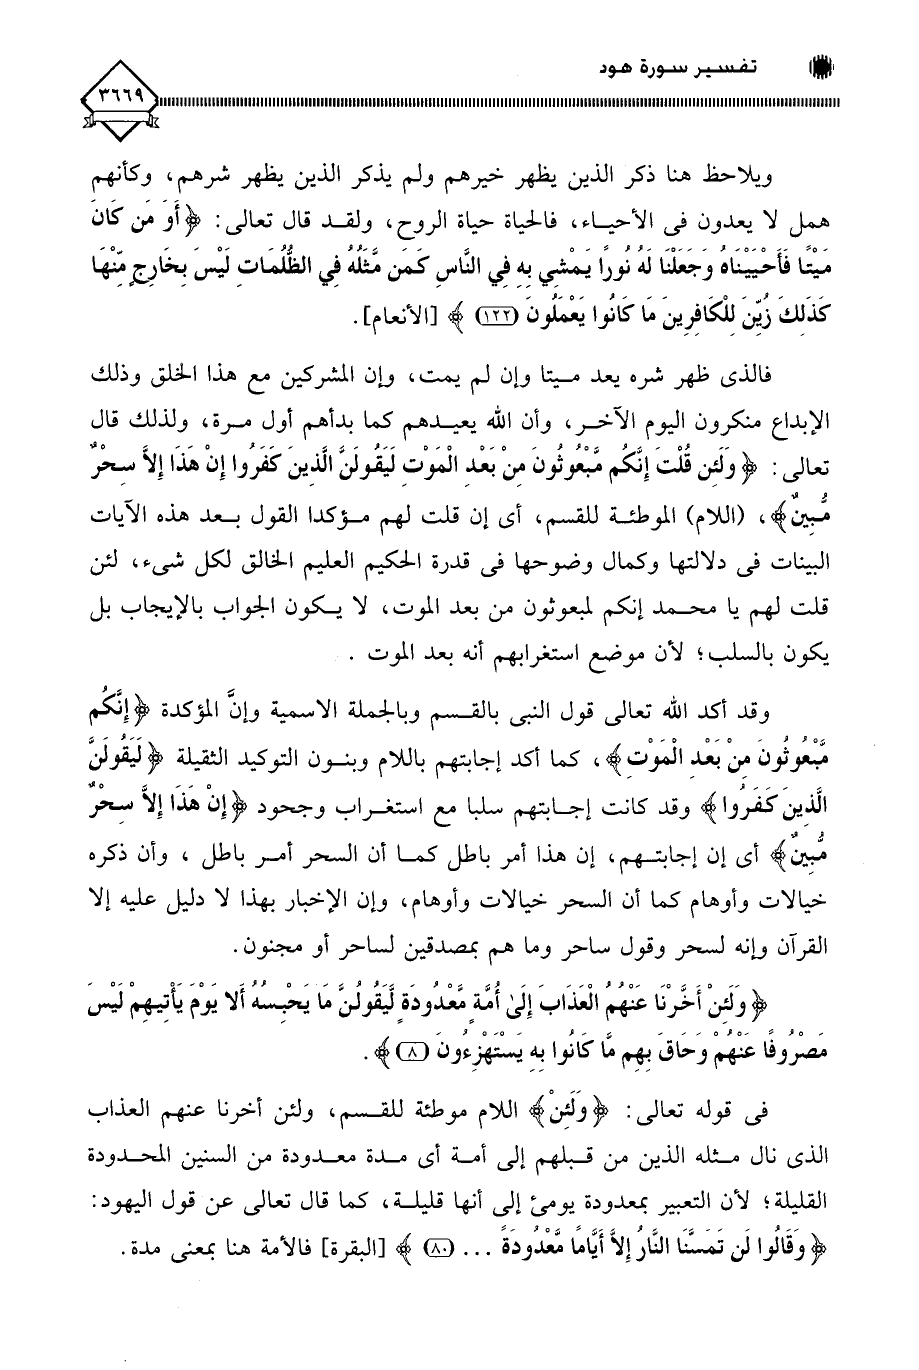 تفسير سورة هود
٣٦٦٩
ويلاحظ هنا ذكر الذين يظهر خيرهم ولم يذكر الذين يظهر شرهم، وكأنهم
همل لا يعدون فى الأحياء، فالحياة حياة الروح، ولقد قال تعالى: ﴿أَوَ مَن كَانَ
مَيْتًا فَأَحْيَيْنَاهُ وَجَعَلْنَا لَهُ نُورًا يَمْشِي بِهِ فِي النَّاسِ كَمَن مَّثَلُهُ فِي الظُّلُمَاتِ لَيْسَ بِخَارِجٍ مِّنْهَا
كَذَلِكَ زُيِّنَ لِلْكَافِرِينَ مَا كَانُوا يَعْمَلُونَ (١٢٢)﴾ [الأنعام].
فالذى ظهر شره يعد ميتا وإن لم يمت، وإن المشركين مع هذا الخلق وذلك
الإبداع منكرون اليوم الآخر، وأن الله يعيدهم كما بدأهم أول مرة، ولذلك قال
تعالى: ﴿وَلَئِن قُلْتَ إِنَّكُم مَّبْعُوثُونَ مِنْ بَعْدِ الْمَوْتِ لَيَقُولَنَّ الَّذِينَ كَفَرُوا إِنْ هَذَا إِلاَّ سِحْرٌ
مُّبِينٌ﴾، (اللام) الموطئة للقسم، أى إن قلت لهم مؤكدا القول بعد هذه الآيات
البينات فى دلالتها وكمال وضوحها فى قدرة الحكيم العليم الخالق لكل شىء، لئن
قلت لهم يا محمد إنكم لمبعوثون من بعد الموت، لا يكون الجواب بالإيجاب بل
يكون بالسلب؛ لأن موضع استغرابهم أنه بعد الموت .
وقد أكد الله تعالى قول النبى بالقسم وبالجملة الاسمية وإنَّ المؤكدة ﴿إِنَّكُم
مَّبْعُوثُونَ مِنْ بَعْدِ الْمَوْتِ﴾، كما أكد إجابتهم باللام وبنون التوكيد الثقيلة ﴿لَيَقُولَنَّ
الَّذِينَ كَفَرُوا﴾ وقد كانت إجابتهم سلبا مع استغراب وجحود ﴿إِنْ هَذَا إِلاَّ سِحْرٌ
مُّبِينٌ﴾ أى إن إجابتهم، إن هذا أمر باطل كما أن السحر أمر باطل ، وأن ذكره
خيالات وأوهام كما أن السحر خيالات وأوهام، وإن الإخبار بهذا لا دليل عليه إلا
القرآن وإنه لسحر وقول ساحر وما هم بمصدقين لساحر أو مجنون.
﴿وَلَئِنْ أَخَّرْنَا عَنْهُمُ الْعَذَابَ إِلَىٰ أُمَّةٍ مَّعْدُودَةٍ لَّيَقُولُنَّ مَا يَحْبِسُهُ أَلا يَوْمَ يَأْتِيهِمْ لَيْسَ
مَصْرُوفًا عَنْهُمْ وَحَاقَ بِهِم مَّا كَانُوا بِهِ يَسْتَهْزِءُونَ (٨)﴾.
فى قوله تعالى: ﴿وَلَئِنْ﴾ اللام موطئة للقسم، ولئن أخرنا عنهم العذاب
الذى نال مثله الذين من قبلهم إلى أمة أى مدة معدودة من السنين المحدودة
القليلة؛ لأن التعبير بمعدودة يومئ إلى أنها قليلة، كما قال تعالى عن قول اليهود:
﴿وَقَالُوا لَن تَمَسَّنَا النَّارُ إِلاَّ أَيَّامًا مَّعْدُودَةً ... (٨٠)﴾ [البقرة] فالأمة هنا بمعنى مدة.